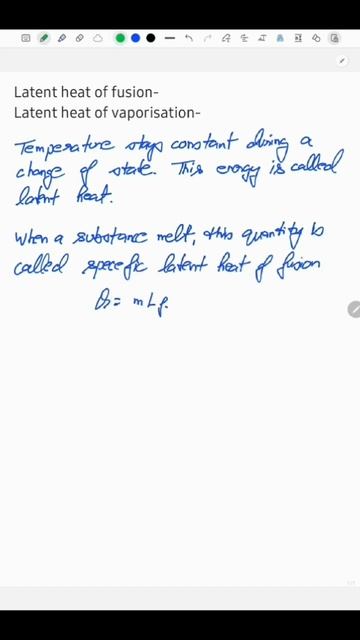 Latent heat of fusion-
Latent heat of vaporisation-
Temperature stays constant during a
change of state. This energy is called
latent heat.
When a substance melt, this quantity is
called specific latent heat of fusion
Q = mLf.